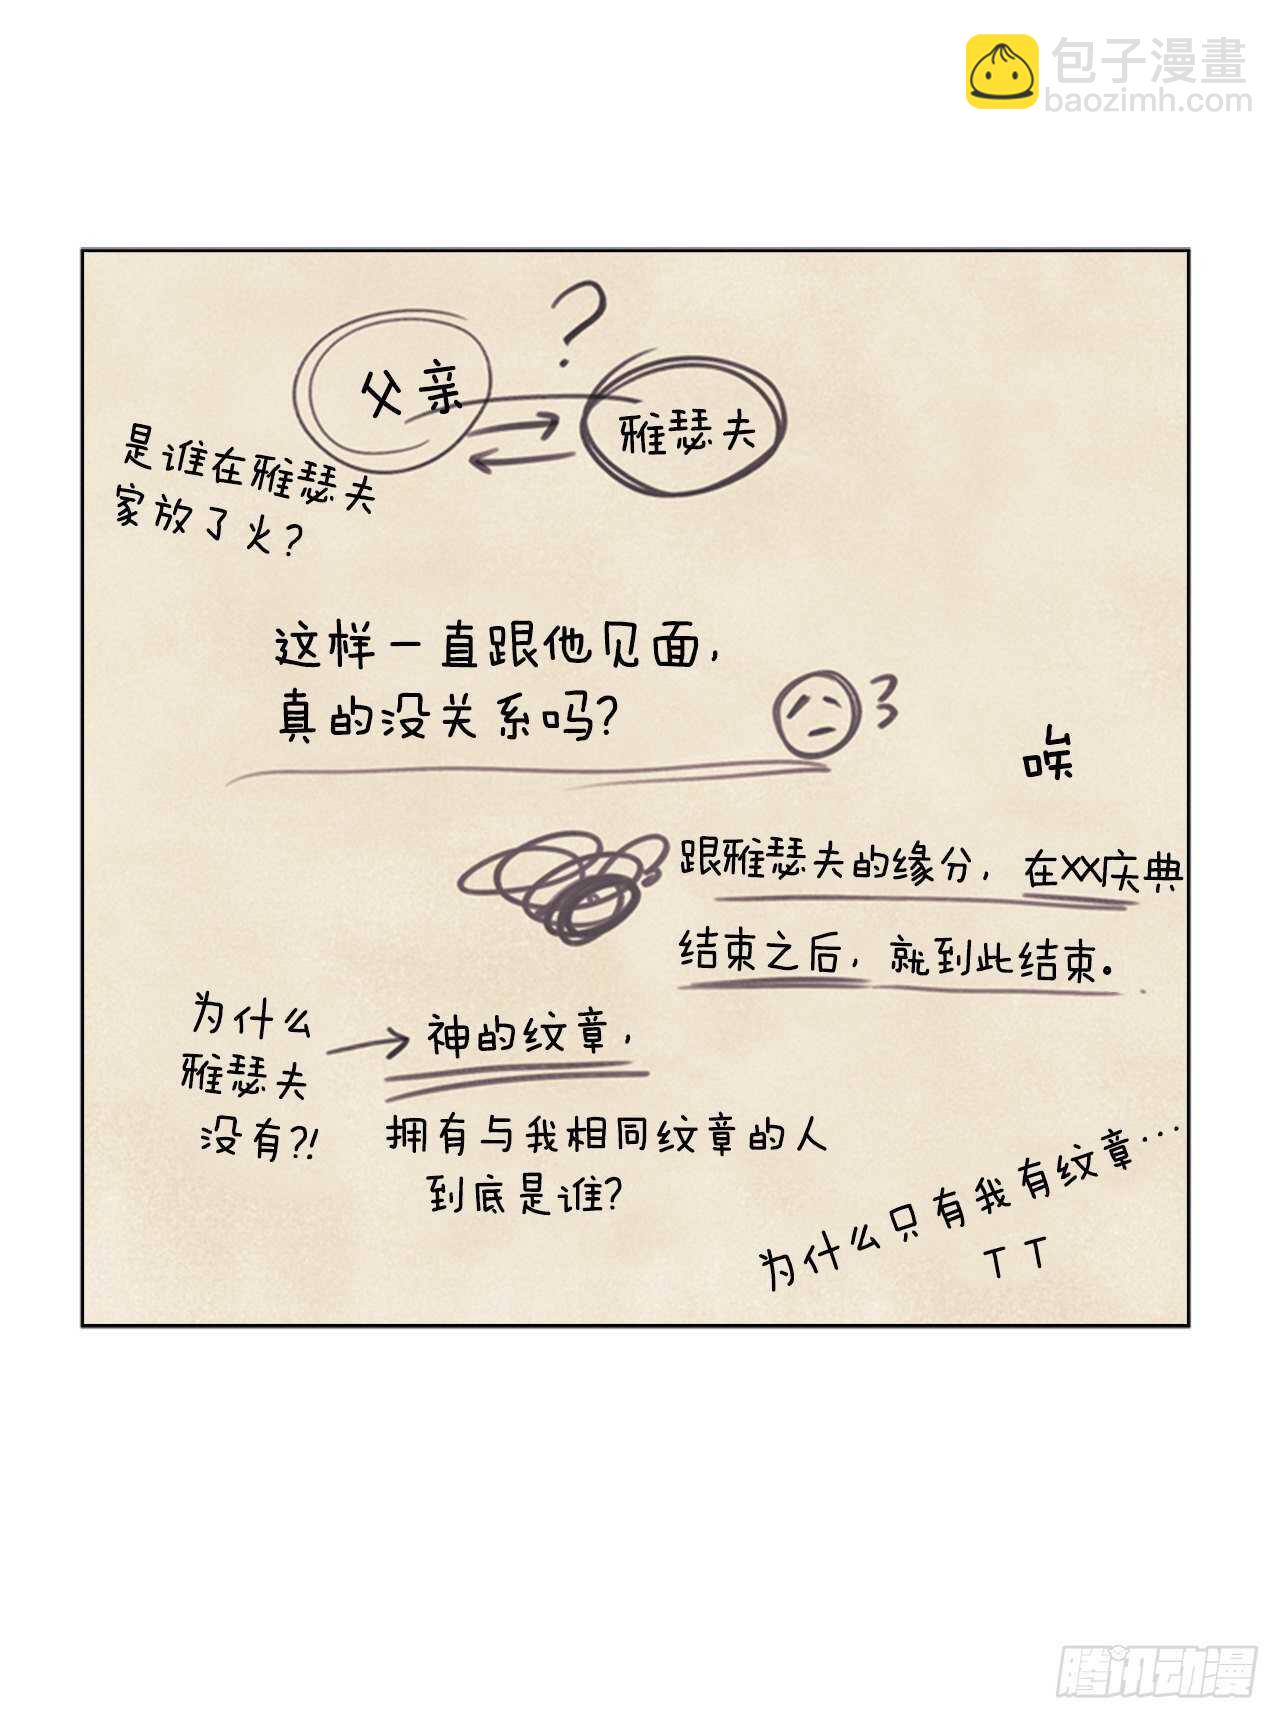 包子漫畫
baozimh.com
?
父亲
雅瑟夫
是谁在雅瑟夫
家放了火?
这样一直跟他见面,
真的没关系吗?
唉
跟雅瑟夫的缘分, 在XX庆典
结束之后, 就到此结束.
为什么
雅瑟夫
没有?!
神的纹章,
拥有与我相同纹章的人
到底是谁?
为什么只有我有纹章…
TT
腾讯动漫